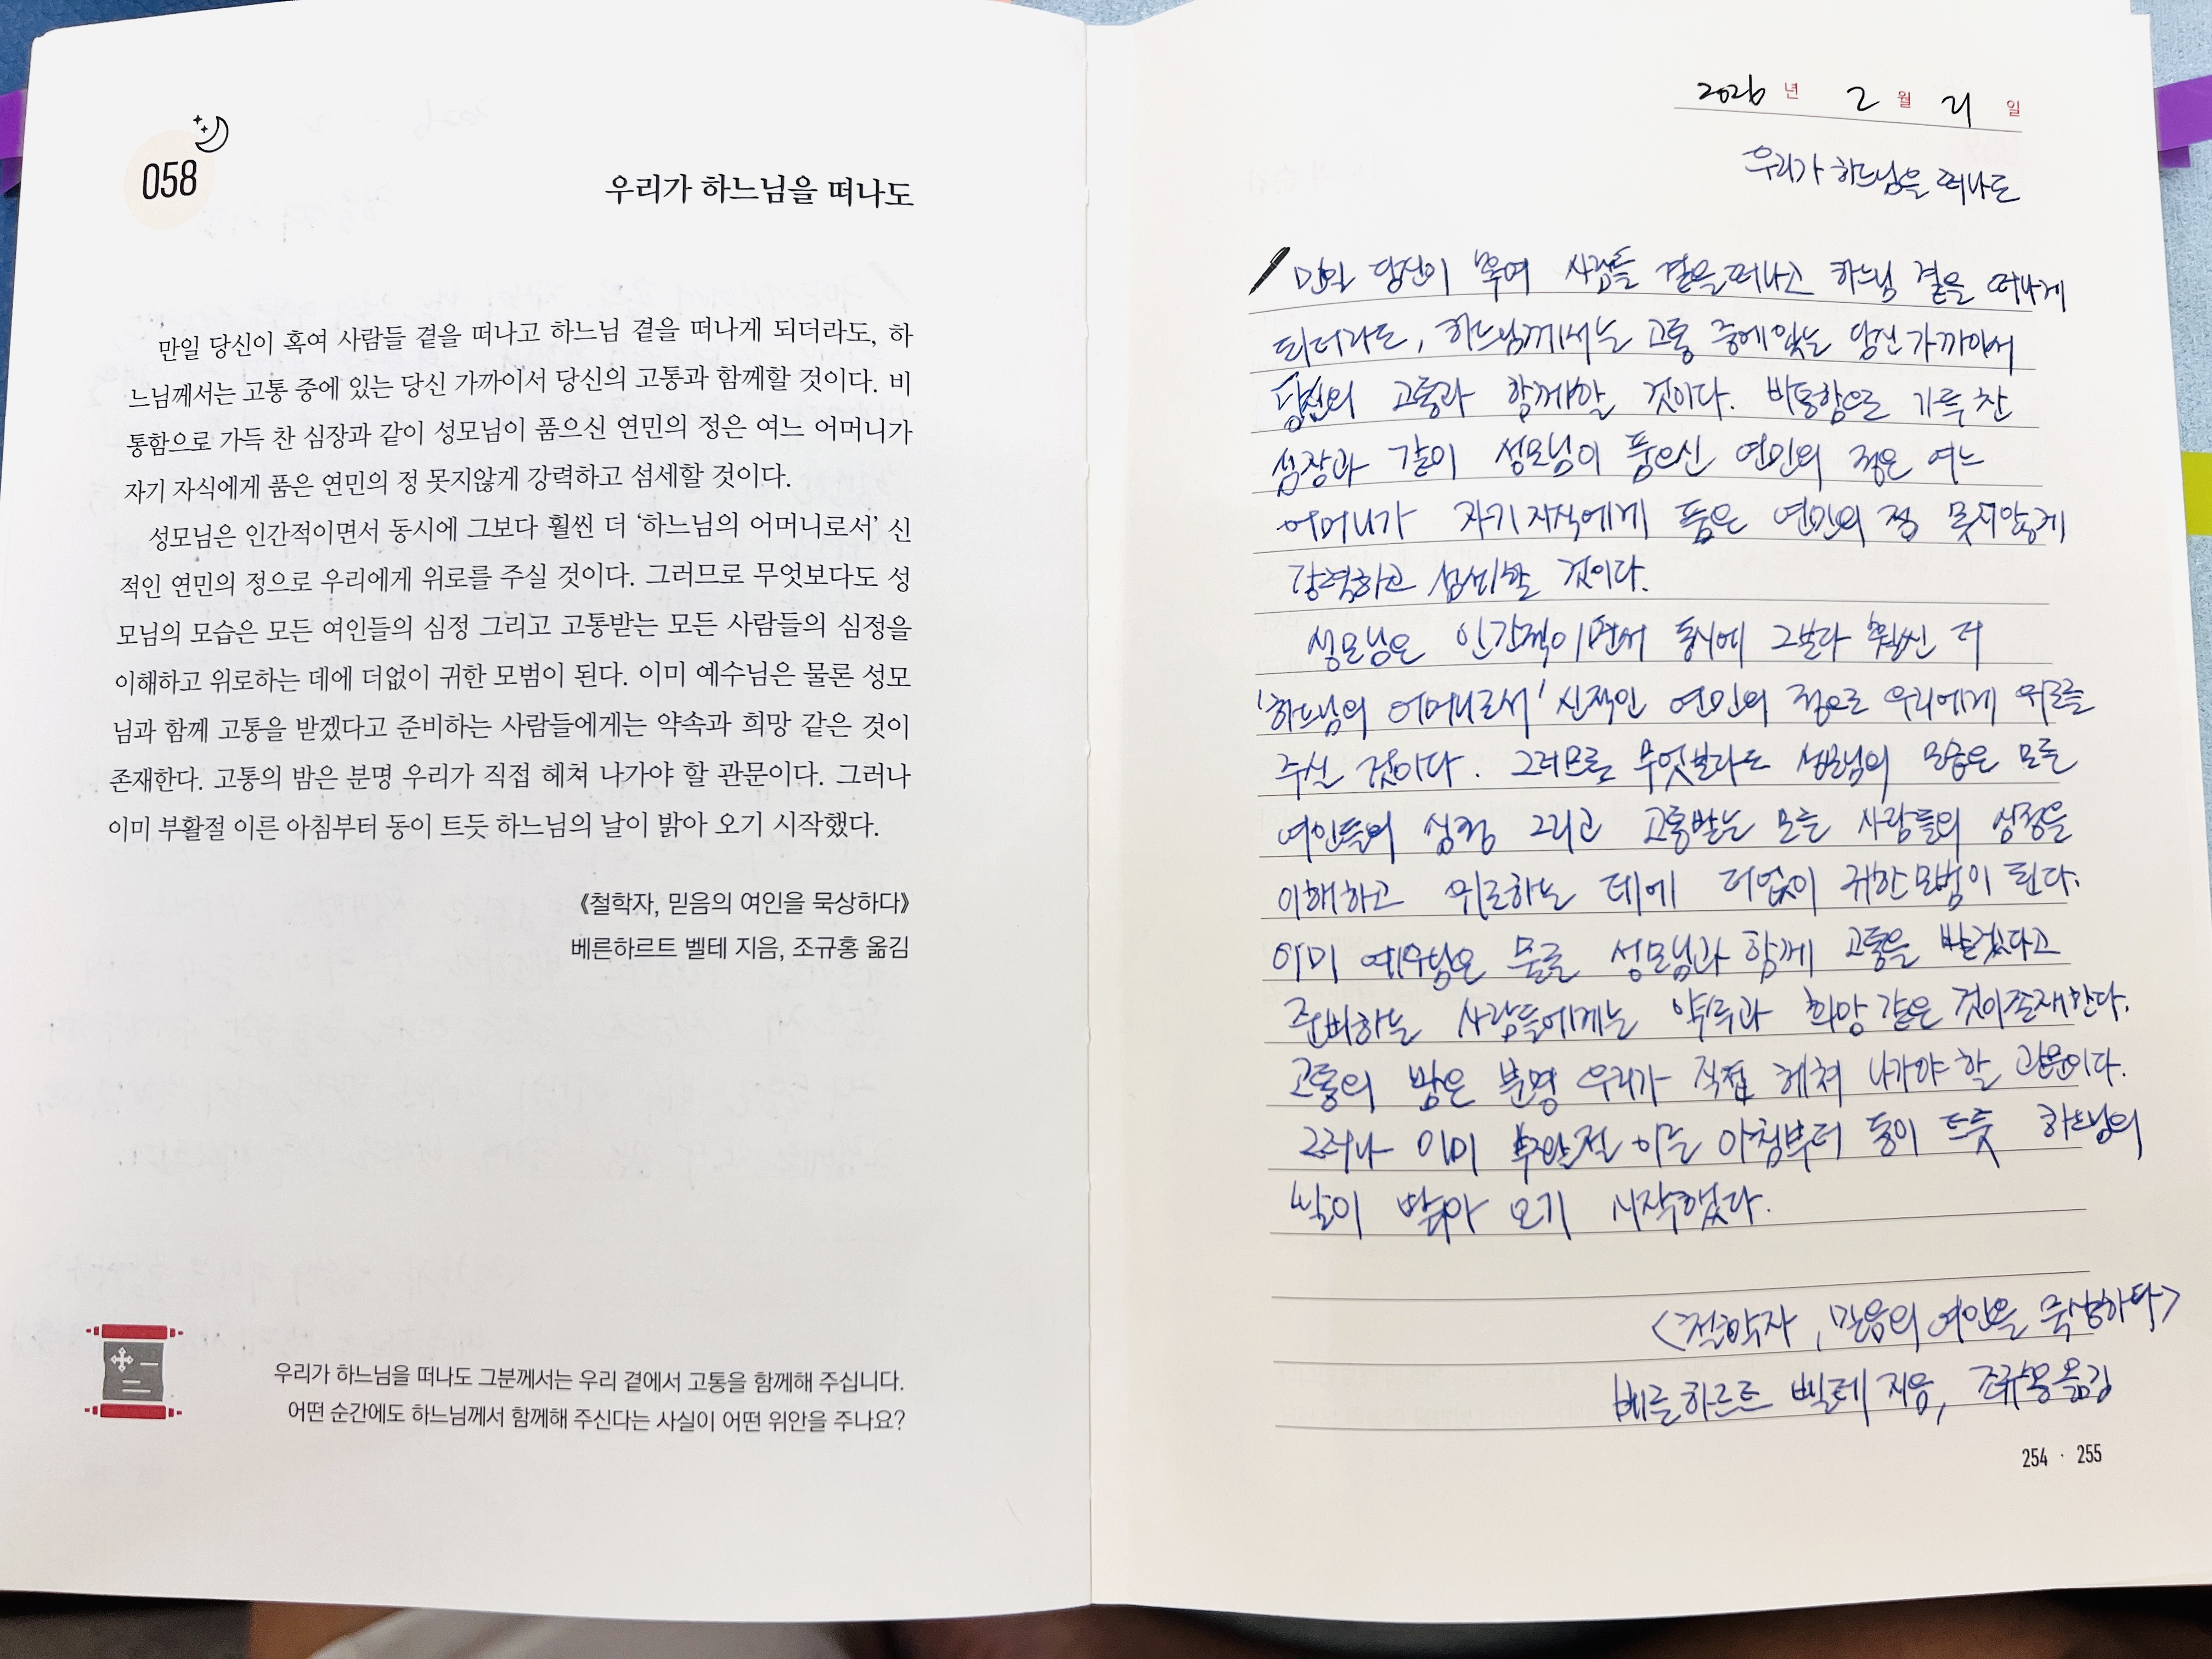 058
우리가 하느님을 떠나도
만일 당신이 혹여 사람들 곁을 떠나고 하느님 곁을 떠나게 되더라도, 하
느님께서는 고통 중에 있는 당신 가까이서 당신의 고통과 함께할 것이다. 비
통함으로 가득 찬 심장과 같이 성모님이 품으신 연민의 정은 여느 어머니가
자기 자식에게 품은 연민의 정 못지않게 강력하고 섬세할 것이다.
성모님은 인간적이면서 동시에 그보다 훨씬 더 ‘하느님의 어머니로서’ 신
적인 연민의 정으로 우리에게 위로를 주실 것이다. 그러므로 무엇보다도 성
모님의 모습은 모든 여인들의 심정 그리고 고통받는 모든 사람들의 심정을
이해하고 위로하는 데에 더없이 귀한 모범이 된다. 이미 예수님은 물론 성모
님과 함께 고통을 받겠다고 준비하는 사람들에게는 약속과 희망 같은 것이
존재한다. 고통의 밤은 분명 우리가 직접 헤쳐 나가야 할 관문이다. 그러나
이미 부활절 이른 아침부터 동이 트듯 하느님의 날이 밝아 오기 시작했다.
《철학자, 믿음의 여인을 묵상하다》
베른하르트 벨테 지음, 조규홍 옮김
우리가 하느님을 떠나도 그분께서는 우리 곁에서 고통을 함께해 주십니다.
어떤 순간에도 하느님께서 함께해 주신다는 사실이 어떤 위안을 주나요?
2026 년 2 월 21 일
우리가 하느님을 떠나도
만일 당신이 혹여 사람들 곁을 떠나고 하느님 곁을 떠나게
되더라도, 하느님께서는 고통 중에 있는 당신 가까이서
당신의 고통과 함께할 것이다. 비통함으로 가득 찬
심장과 같이 성모님이 품으신 연민의 정은 여느
어머니가 자기 자식에게 품은 연민의 정 못지않게
강력하고 섬세할 것이다.
성모님은 인간적이면서 동시에 그보다 훨씬 더
'하느님의 어머니로서' 신적인 연민의 정으로 우리에게 위로를
주실 것이다. 그러므로 무엇보다도 성모님의 모습은 모든
여인들의 심정 그리고 고통받는 모든 사람들의 심정을
이해하고 위로하는 데에 더없이 귀한 모범이 된다.
이미 예수님은 물론 성모님과 함께 고통을 받겠다고
준비하는 사람들에게는 약속과 희망 같은 것이 존재한다.
고통의 밤은 분명 우리가 직접 헤쳐 나가야 할 관문이다.
그러나 이미 부활절 이른 아침부터 동이 트듯 하느님의
날이 밝아 오기 시작했다.
<철학자, 믿음의 여인을 묵상하다>
베른하르트 벨테 지음, 조규홍 옮김
254 · 255